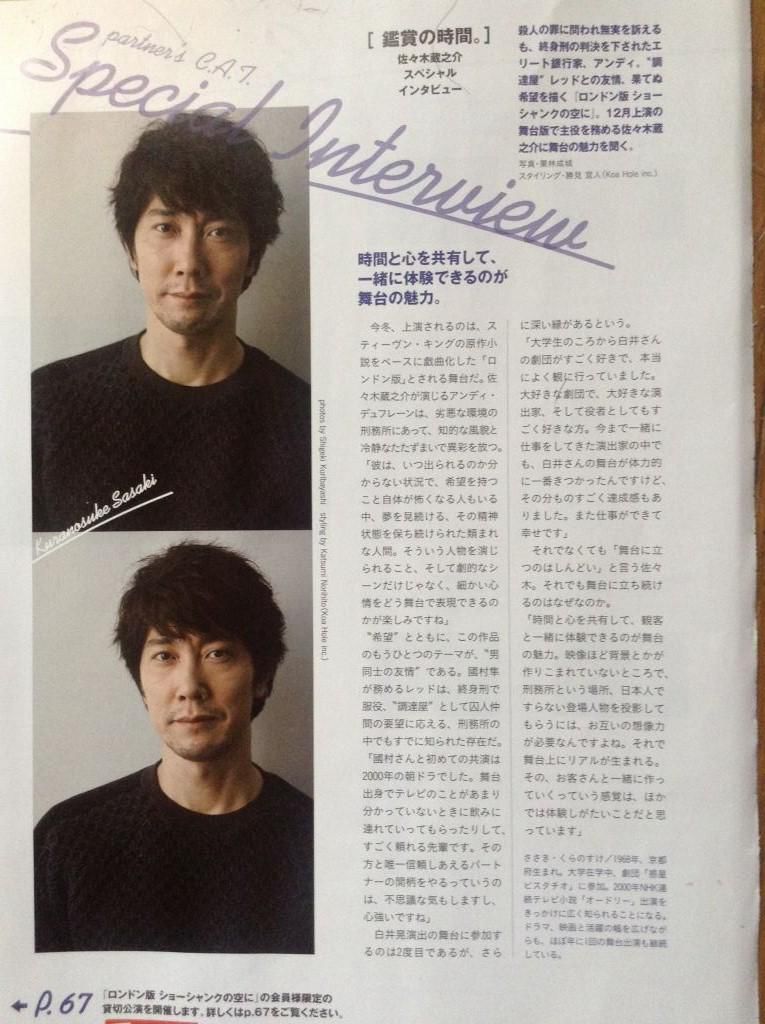 partner's C.A.T.
Special Interview
[ 鑑賞の時間。]
佐々木蔵之介
スペシャル
インタビュー
殺人の罪に問われ無実を訴える
も、終身刑の判決を下されたエ
リート銀行家、アンディ。“調
達屋”レッドとの友情、果てぬ
希望を描く『ロンドン版 ショー
シャンクの空に』。12月上演の
舞台版で主役を務める佐々木蔵
之介に舞台の魅力を聞く。
写真・栗林成城
スタイリング・勝見 宜人(Koa Hole inc.)
時間と心を共有して、
一緒に体験できるのが
舞台の魅力。
今冬、上演されるのは、ス
ティーヴン・キングの原作小
説をベースに戯曲化した「ロ
ンドン版」とされる舞台だ。佐
々木蔵之介が演じるアンディ・
デュフレーンは、劣悪な環境の
刑務所にあって、知的な風貌と
冷静なたたずまいで異彩を放つ。
「彼は、いつ出られるのか分
からない状況で、希望を持つ
こと自体が怖くなる人もいる
中、夢を見続ける、その精神
状態を保ち続けられた類まれ
な人間。そういう人物を演じ
られること、そして劇的なシ
ーンだけじゃなく、細かい心
情をどう舞台で表現できるの
かが楽しみですね」
“希望”とともに、この作品
のもうひとつのテーマが、“男
同士の友情”である。國村隼
が務めるレッドは、終身刑で
服役、“調達屋”として囚人仲
間の要望に応える、刑務所の
中でもすでに知られた存在だ。
「國村さんと初めての共演は
2000年の朝ドラでした。舞台
出身でテレビのことがあまり
分かっていないときに飲みに
連れていってもらったりして、
すごく頼れる先輩です。その
方と唯一信頼しあえるパート
ナーの間柄をやるっていうの
は、不思議な気もしますし、
心強いですね」
白井晃演出の舞台に参加す
るのは2度目であるが、さら
に深い縁があるという。
「大学生のころから白井さん
の劇団がすごく好きで、本当
によく観に行っていました。
大好きな劇団で、大好きな演
出家、そして役者としてもす
ごく好きな方。今まで一緒に
仕事をしてきた演出家の中で
も、白井さんの舞台が体力的
に一番きつかったんですけど、
その分ものすごく達成感もあ
りました。また仕事ができて
幸せです」
それでなくても「舞台に立
つのはしんどい」と言う佐々
木。それでも舞台に立ち続け
るのはなぜなのか。
「時間と心を共有して、観客
と一緒に体験できるのが舞台
の魅力。映像ほど背景とかが
作りこまれていないところで、
刑務所という場所、日本人で
すらない登場人物を投影して
もらうには、お互いの想像力
が必要なんですよね。それで
舞台上にリアルが生まれる。
その、お客さんと一緒に作っ
ていくっていう感覚は、ほか
では体験しがたいことだと思
っています」
ささき・くらのすけ/1968年、京都
府生まれ。大学在学中、劇団「惑星
ピスタチオ」に参加。2000年NHK連
続テレビ小説「オードリー」出演を
きっかけに広く知られることになる。
ドラマ、映画と活躍の幅を広げなが
らも、ほぼ年に1回の舞台出演も継続
している。
Kuranosuke Sasaki
photos by Shigeki Kuribayashi styling by Katsumi Norihito(Koa Hole inc.)
← P. 67
『ロンドン版 ショーシャンクの空に』の会員様限定の
貸切公演を開催します。詳しくはp.67をご覧ください。